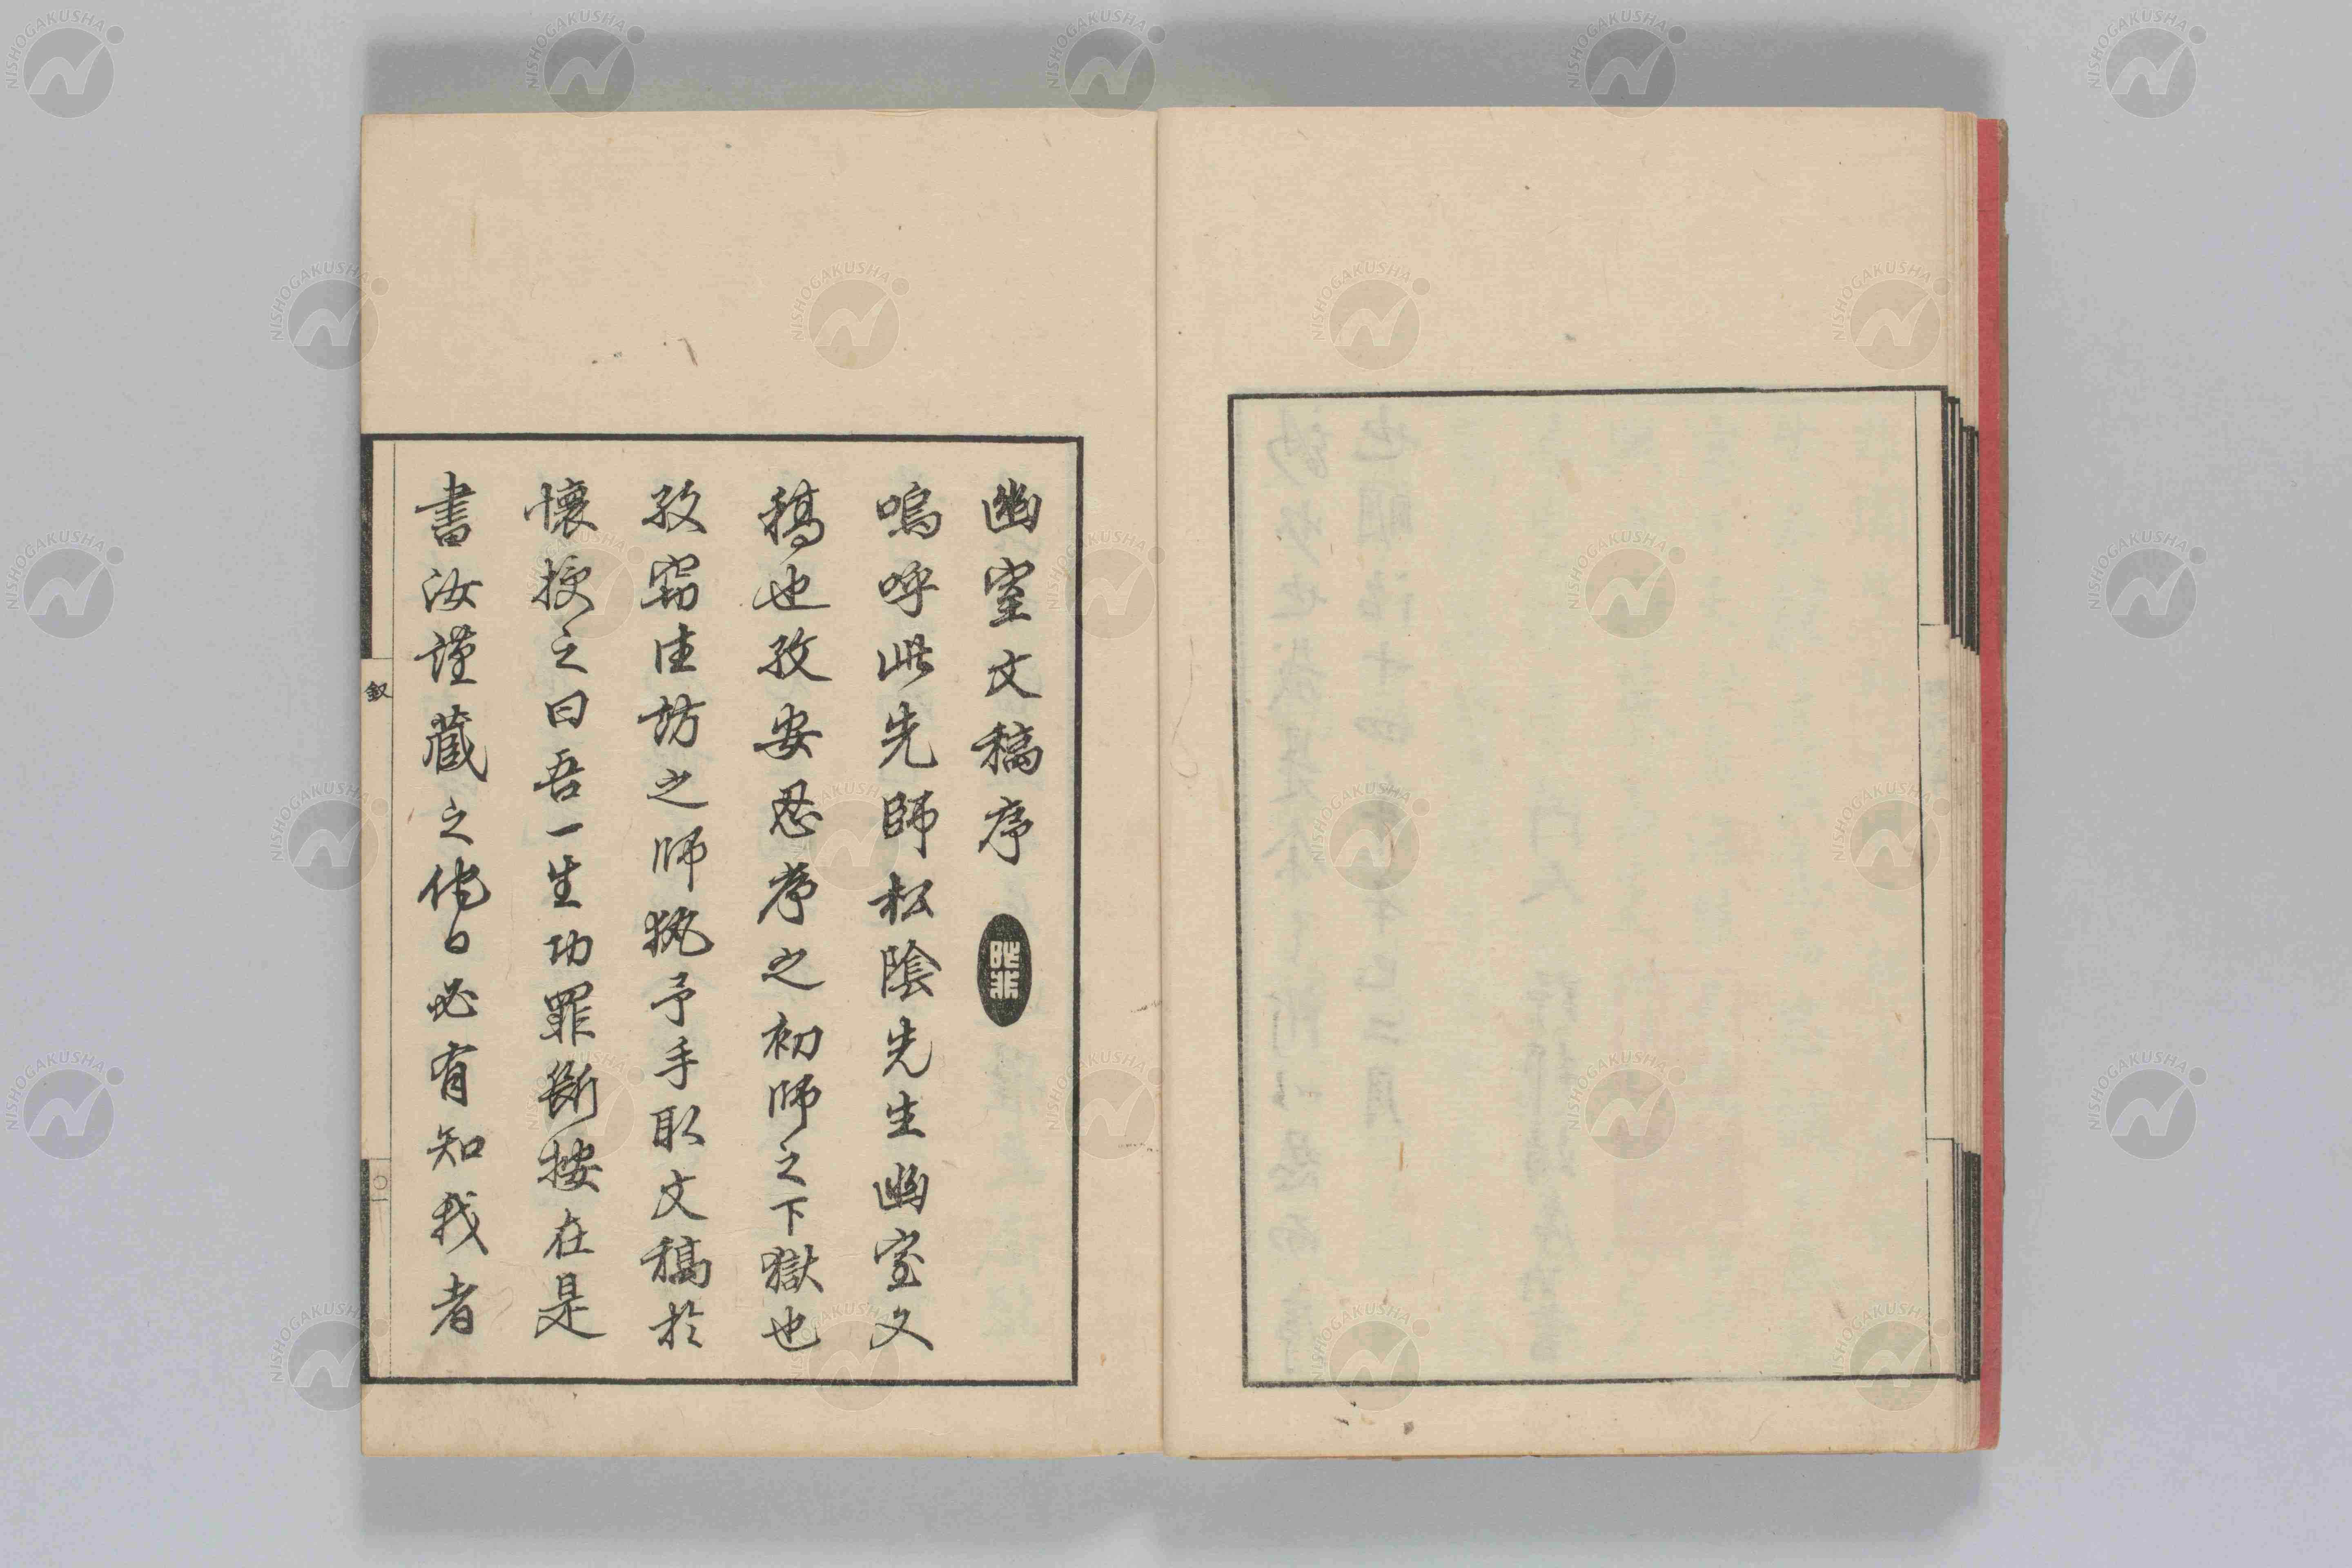 幽室文稿序
嗚呼此先師松陰先生幽室文
稿也孜安忍序之初師之下獄也
孜窃往訪之師執予手取文稿於
懷授之曰吾一生功罪斷按在是
書汝謹藏之他日必有知我者
叙
NISHOGAKUSHA